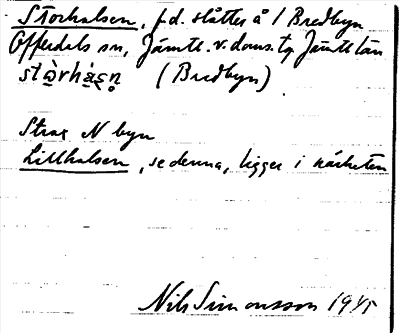 Storhalsen, f.d. slåtter å / Bredbyn
Offerdals sn, Jämtl. v. doms. tg Jämtl län
stòrhàsn̥ (Bredbyn)
Strax N byn
Lillhalsen, se denna, ligger i närheten
Nils Simonsson 1945